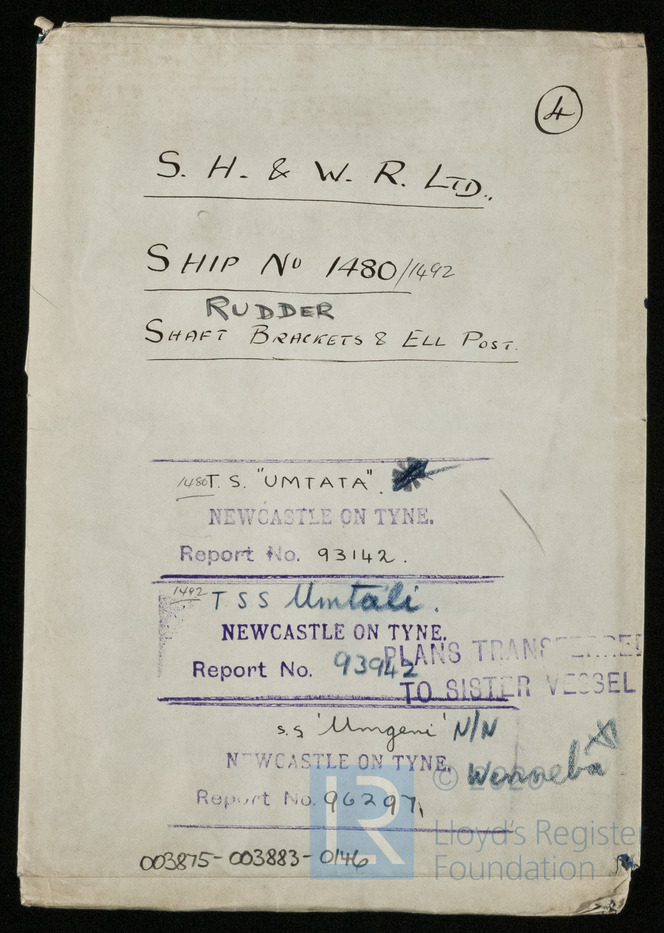 4
S. H. & W. R. LTD.
SHIP No 1480/1492
RUDDER
SHAFT BRACKETS & ELL POST.
1480 T. S. "UMTATA".
NEWCASTLE ON TYNE.
Report No. 93142.
1492 T S S Umtali.
NEWCASTLE ON TYNE.
Report No. 93942
PLANS TRANSFERRED
TO SISTER VESSEL
s.s 'Umgeni' N/N
NEWCASTLE ON TYNE.
Report No. 96297
© 2020
Lloyd's Register
Foundation
003875-003883-0146